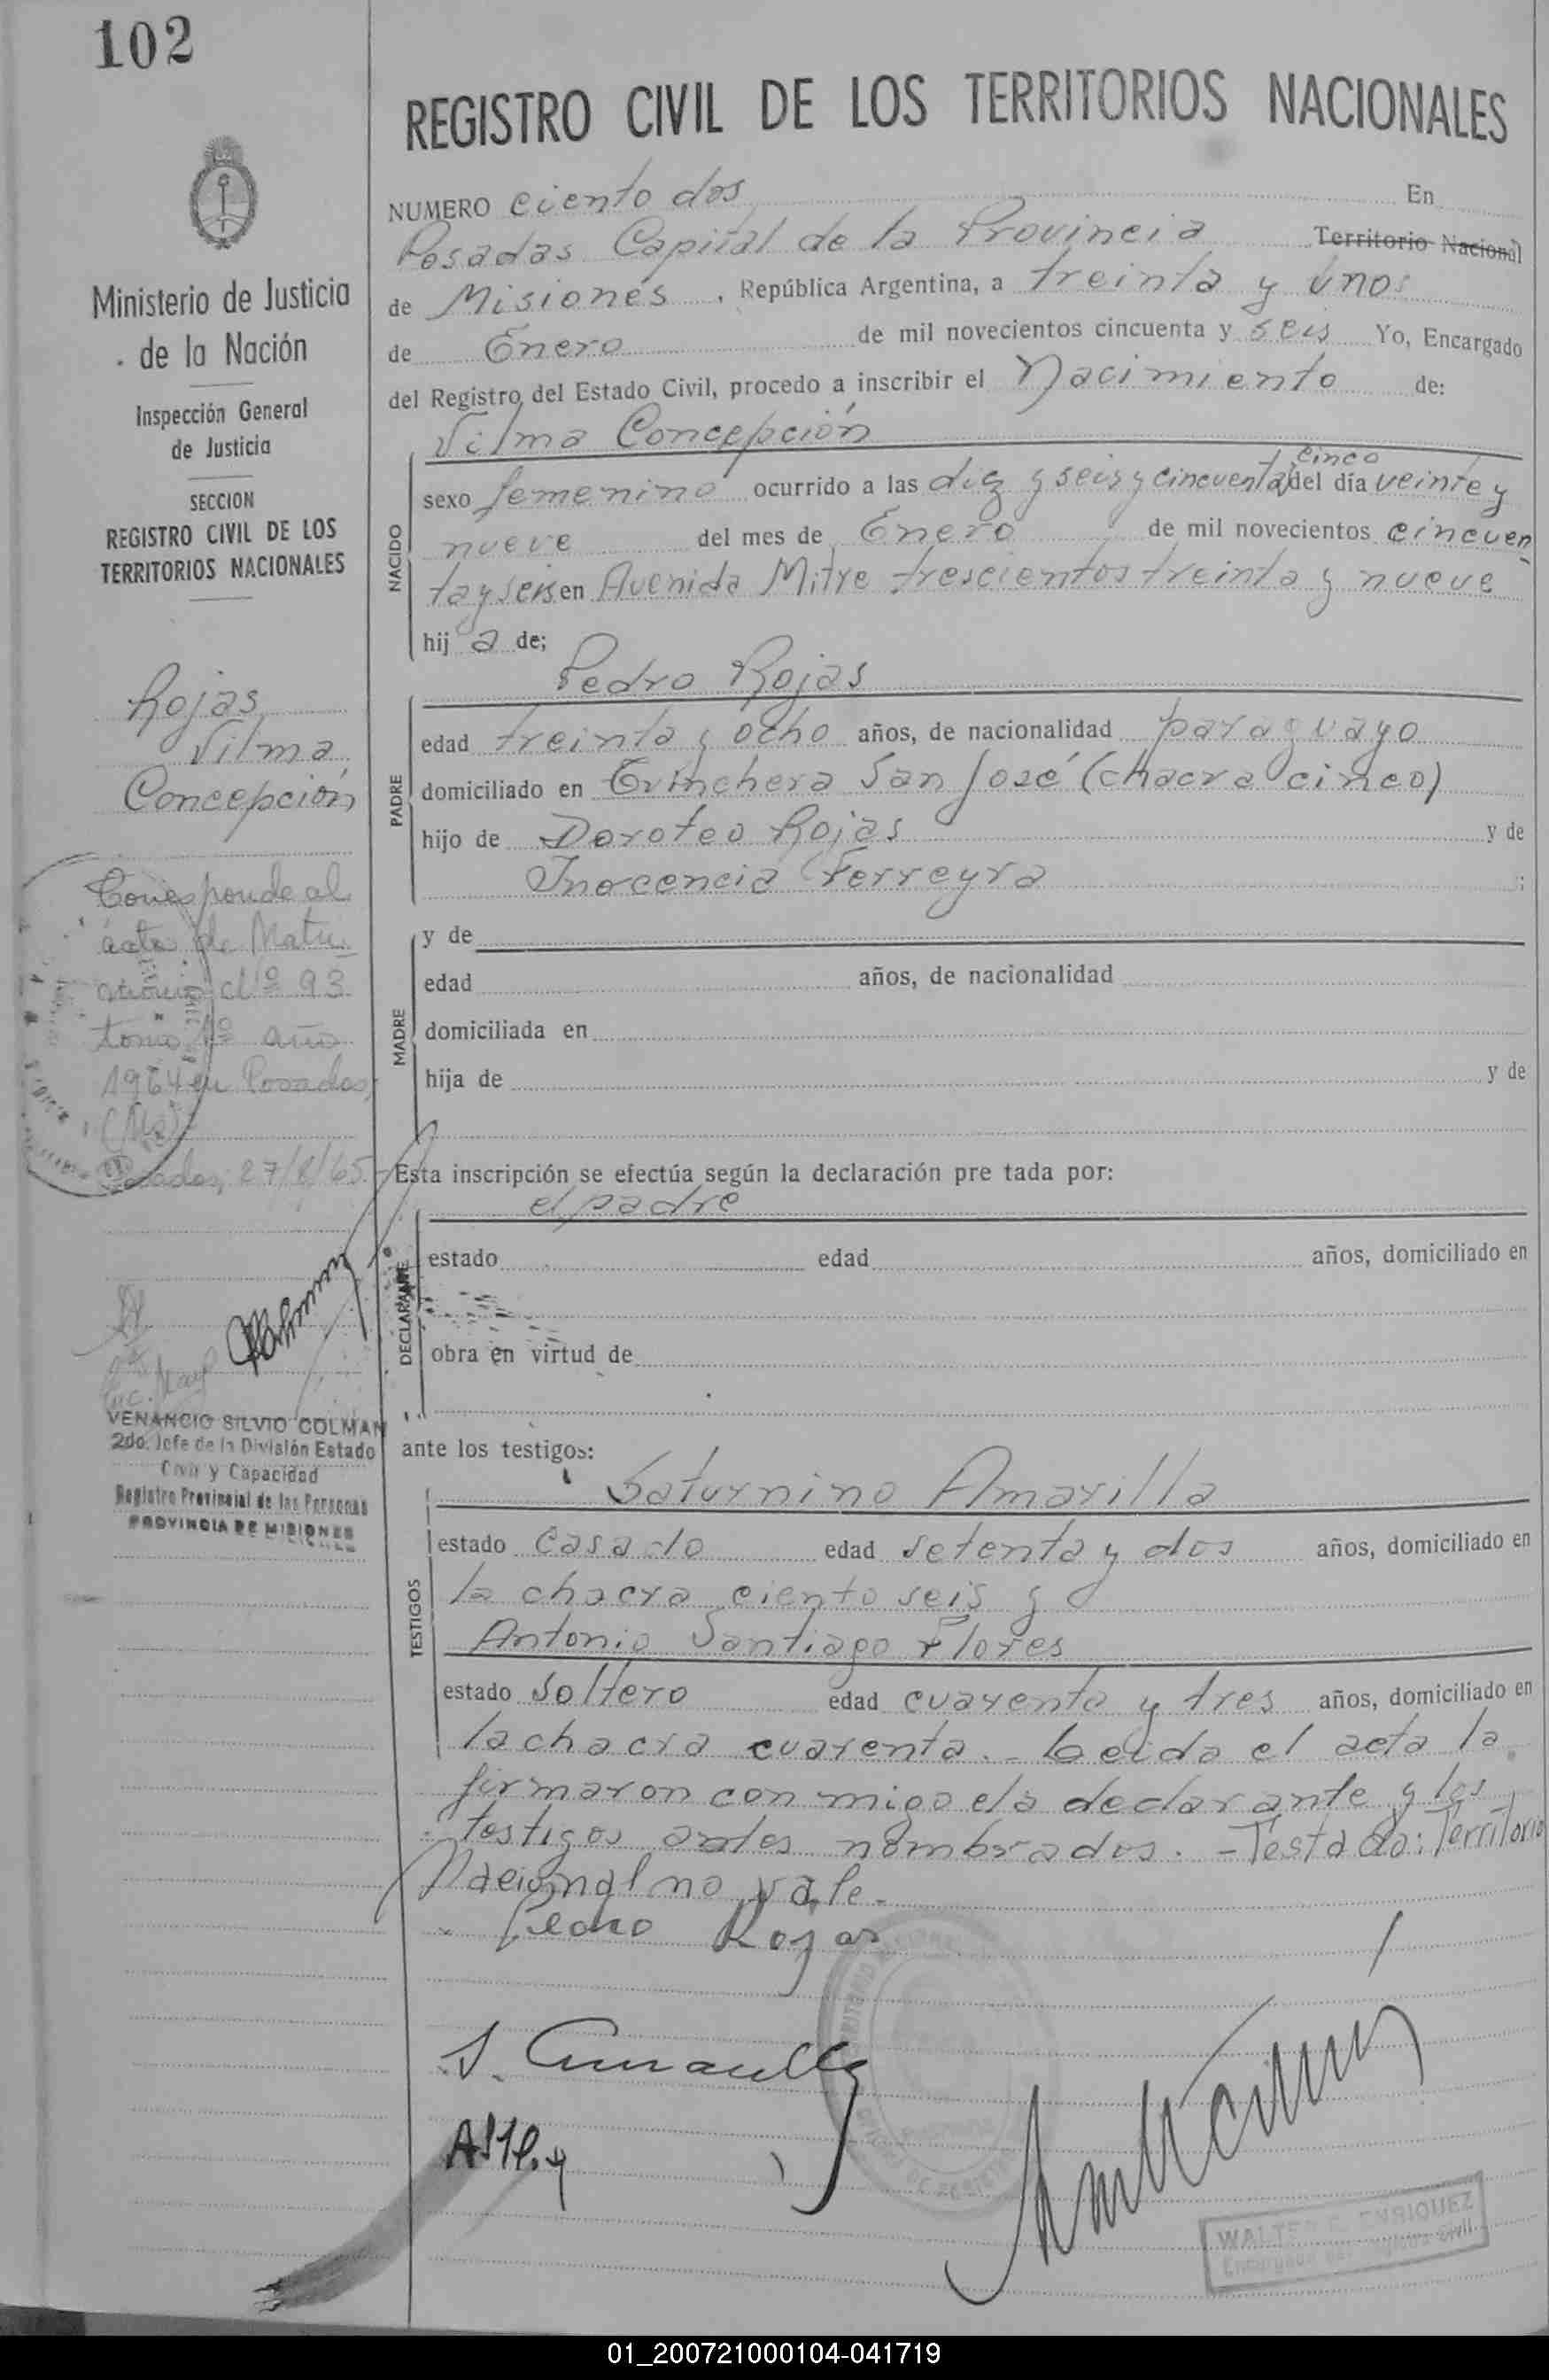 102
REGISTRO CIVIL DE LOS TERRITORIOS NACIONALES
Ministerio de Justicia
de la Nación
Inspección General
de Justicia
SECCION
REGISTRO CIVIL DE LOS
TERRITORIOS NACIONALES
Rojas
Vilma
Concepción
Corresponde al
acta de Matri
monio Nº 93
tomo 1º año
1964 en Posadas,
Posadas, 27/8/65
VENANCIO SILVIO COLMAN
2do. Jefe de la División Estado
Civil y Capacidad
Registro Provincial de las Personas
PROVINCIA DE MISIONES
NUMERO ciento dos En
Posadas Capital de la Provincia Territorio Nacional
de Misiones, República Argentina, a treinta y uno
de Enero de mil novecientos cincuenta y seis Yo, Encargado
del Registro del Estado Civil, procedo a inscribir el Nacimiento de:
Vilma Concepción
cinco
sexo femenino ocurrido a las diez y seis y cincuenta del día veinte y
nueve del mes de Enero de mil novecientos cincuen
ta y seis en Avenida Mitre trescientos treinta y nueve
NACIDO
hij a de;
Pedro Rojas
edad treinta y ocho años, de nacionalidad paraguayo
domiciliado en Trinchera San José (chacra cinco)
PADRE
hijo de Doroteo Rojas y de
Inocencia Ferreyra ;
y de
edad años, de nacionalidad
domiciliada en
MADRE
hija de y de
Esta inscripción se efectúa según la declaración pre tada por:
el padre
estado edad años, domiciliado en
DECLARANTE
obra en virtud de
ante los testigos:
Saturnino Amarilla
estado casado edad setenta y dos años, domiciliado en
la chacra ciento seis y
TESTIGOS
Antonio Santiago Flores
estado soltero edad cuarenta y tres años, domiciliado en
la chacra cuarenta.- Leida el acta la
firmaron con migo el declarante y los
testigos antes nombrados. - Testado: Territorio
Nacional no vale.
Pedro Rojas
S. Amarilla
WALTER ENRIQUEZ
Encargado del Registro Civil
01_200721000104-041719